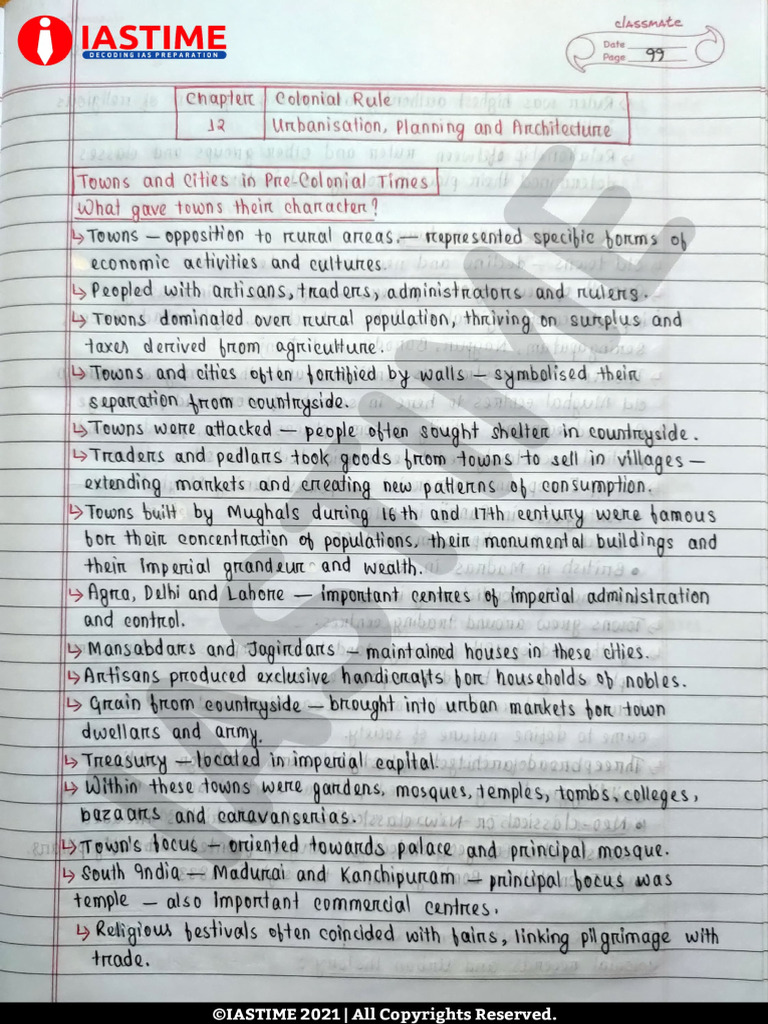 IASTIME
DECODING IAS PREPARATION
classmate
Date
Page 99
Chapter 12
Colonial Rule
Urbanisation, Planning and Architecture
Towns and Cities in Pre-Colonial Times
What gave towns their character?
↳ Towns – opposition to rural areas. – represented specific forms of
economic activities and cultures.
↳ Peopled with artisans, traders, administrators and rulers.
↳ Towns dominated over rural population, thriving on surplus and
taxes derived from agriculture.
↳ Towns and cities often fortified by walls – symbolised their
separation from countryside.
↳ Towns were attacked – people often sought shelter in countryside.
↳ Traders and pedlars took goods from towns to sell in villages –
extending markets and creating new patterns of consumption.
↳ Towns built by Mughals during 16th and 17th century were famous
for their concentration of populations, their monumental buildings and
their Imperial grandeur and wealth.
↳ Agra, Delhi and Lahore – important centres of imperial administration
and control.
↳ Mansabdars and Jagirdars – maintained houses in these cities.
↳ Artisans produced exclusive handicrafts for households of nobles.
↳ Grain from countryside – brought into urban markets for town
dwellars and army.
↳ Treasury – located in imperial capital.
↳ Within these towns were gardens, mosques, temples, tombs, colleges,
bazaars and caravanserias.
↳ Town's focus – oriented towards palace and principal mosque.
↳ South India – Madurai and Kanchipuram – principal focus was
temple – also Important commercial centres.
↳ Religious festivals often coincided with fairs, linking pilgrimage with
trade.
IASTIME
©IASTIME 2021 | All Copyrights Reserved.